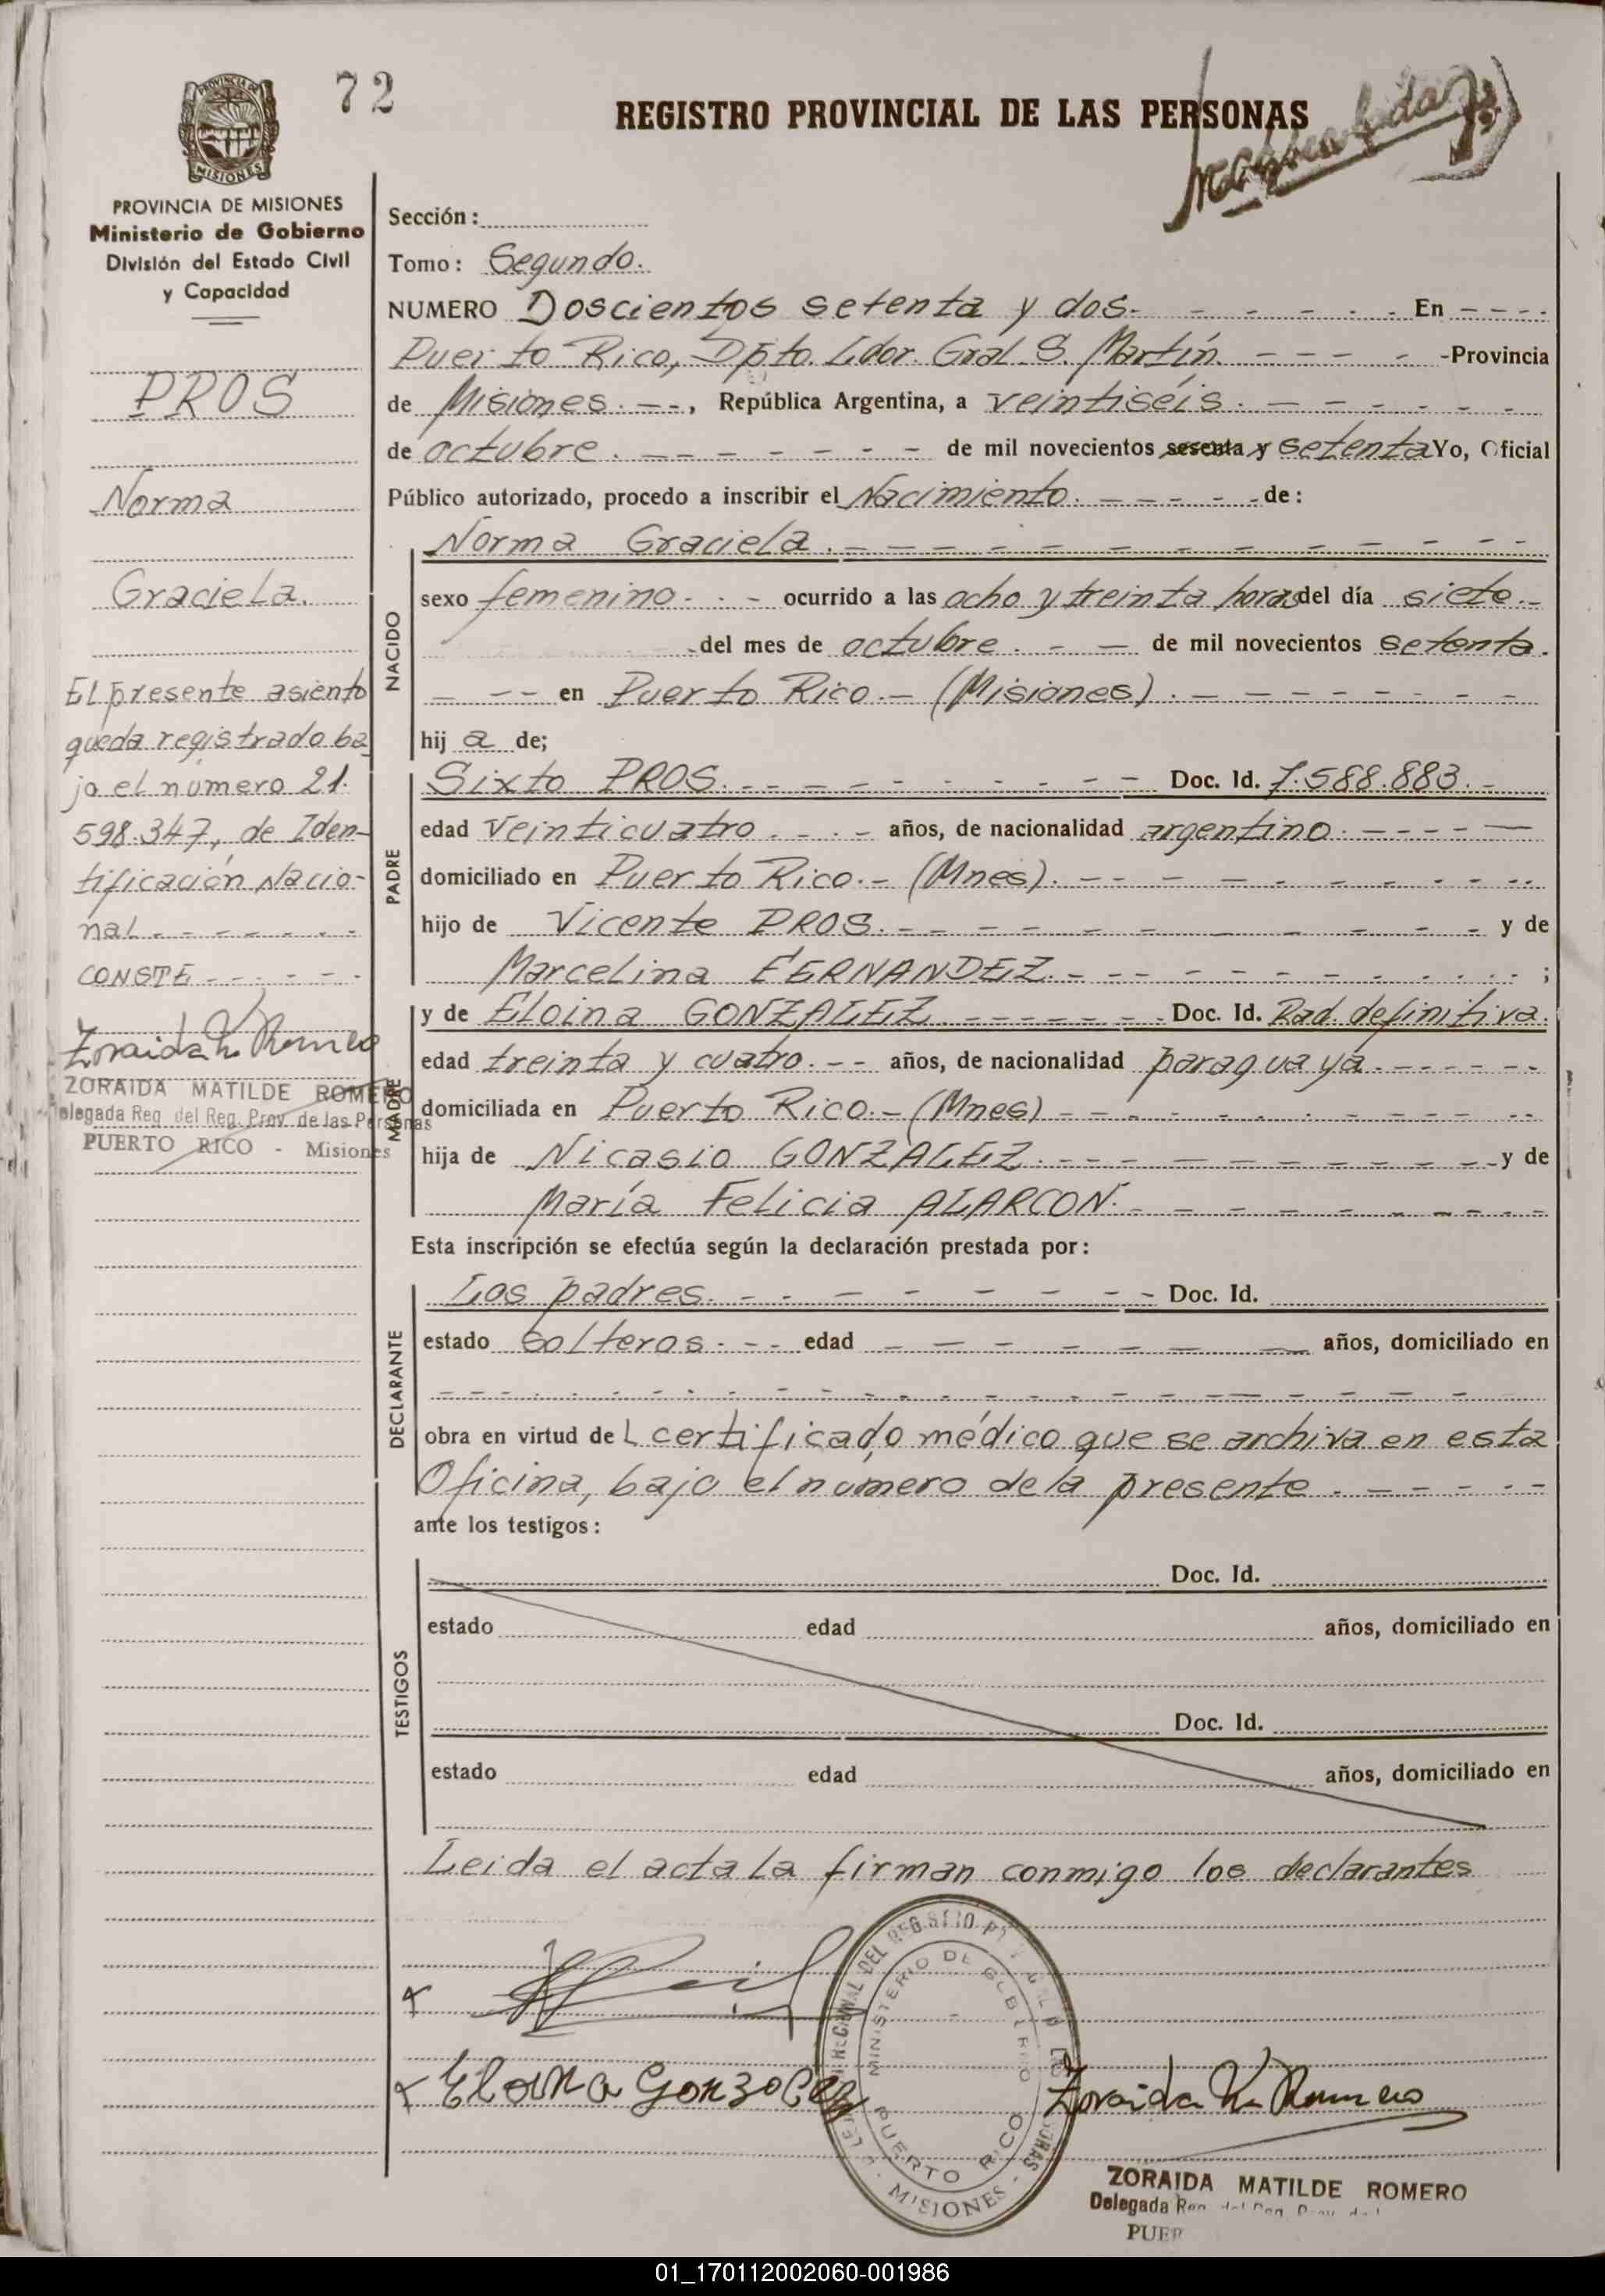 72
REGISTRO PROVINCIAL DE LAS PERSONAS
PROVINCIA DE
MISIONES
PROVINCIA DE MISIONES
Ministerio de Gobierno
División del Estado Civil
y Capacidad
PROS
Norma
Graciela.
El presente asiento
queda registrado ba
jo el número 21.
598.347, de Iden-
tificación Nacio-
nal - - - - - - -
CONSTE - - - - - -
Zoraida M. Romero
ZORAIDA MATILDE ROMERO
Delegada Reg. del Reg. Prov. de las Personas
PUERTO RICO - Misiones
Sección:
Tomo: Segundo.
NUMERO Doscientos setenta y dos. - - - - - En - - - -
Puerto Rico, Dpto. Ldor. Gral. S. Martín. - - - - -Provincia
de Misiones. - - -, República Argentina, a veintiséis. - - - - - -
de octubre. - - - - - - - de mil novecientos sesenta y setenta Yo, Oficial
Público autorizado, procedo a inscribir el Nacimiento. - - - - - de:
NACIDO
Norma Graciela. - - - - - - - - - - - - - -
sexo femenino - - - ocurrido a las ocho y treinta horas del día siete.-
del mes de octubre. - - de mil novecientos setenta.
- - - - en Puerto Rico.- (Misiones). - - - - - - - -
hij a de;
PADRE
Sixto PROS. - - - - - - - - - Doc. Id. 7.588.883. -
edad veinticuatro. - - - años, de nacionalidad argentino. - - - - -
domiciliado en Puerto Rico.- (Mnes). - - - - - - - - - -
hijo de Vicente PROS. - - - - - - - - - - - y de
Marcelina FERNANDEZ. - - - - - - - - - - - ;
MADRE
y de Eloina GONZALEZ. - - - - - - - Doc. Id. Rad. definitiva.
edad treinta y cuatro. - - años, de nacionalidad paraguaya. - - - - - -
domiciliada en Puerto Rico.- (Mnes) - - - - - - - - - -
hija de Nicasio GONZALEZ. - - - - - - - - - - y de
María Felicia ALARCON. - - - - - - - - - -
Esta inscripción se efectúa según la declaración prestada por:
DECLARANTE
Los padres. - - - - - - - - Doc. Id.
estado solteros. - - - edad - - - - - - - años, domiciliado en
- - - - - - - - - - - - - - - - - - - -
obra en virtud de L certificado médico que se archiva en esta
Oficina, bajo el numero de la presente. - - - - - -
ante los testigos:
TESTIGOS
Doc. Id.
estado edad años, domiciliado en
Doc. Id.
estado edad años, domiciliado en
Leida el acta la firman conmigo los declarantes
Eloina Gonzalez
MINISTERIO DE GOBIERNO
PUERTO RICO
- MISIONES -
Zoraida M. Romero
ZORAIDA MATILDE ROMERO
Delegada Reg. del Reg. Prov. de l
PUER
01_170112002060-001986